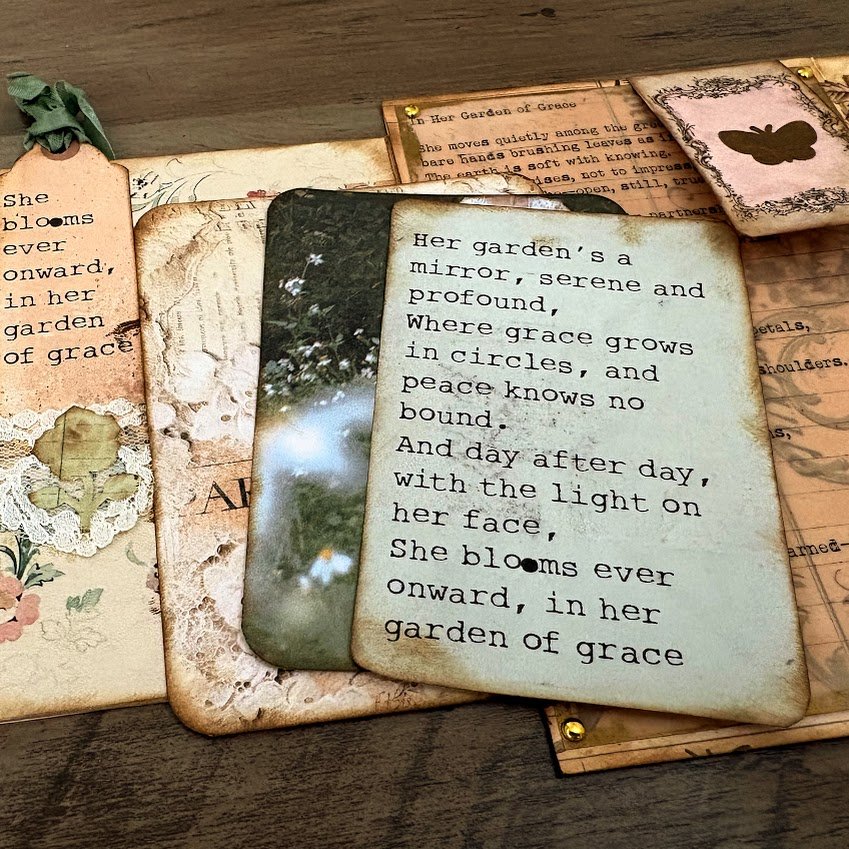 She
blooms
ever
onward,
in her
garden
of grace
In Her Garden of Grace
She moves quietly among the
bare hands brushing leaves as
The earth is soft with knowing.
not to impress
open, still,
petals,
shoulders.
Her garden's a
mirror, serene and
profound,
Where grace grows
in circles, and
peace knows no
bound.
And day after day,
with the light on
her face,
She blooms ever
onward, in her
garden of grace